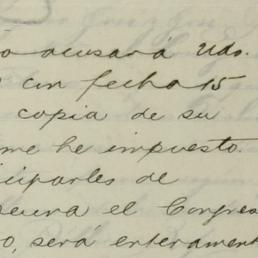 acusará Udo.
con fecha 15
copia de su
me he impuesto.
ciparles de
el Congres
o, será enterament